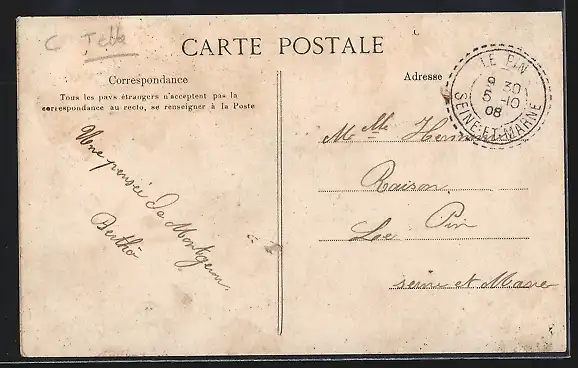 C Tebb
CARTE POSTALE
Correspondance
Tous les pays étrangers n'acceptent pas la
correspondance au recto, se renseigner à la Poste
Une pensée de Montgeron
Berthe
Adresse
LE PIN
9 30
5 -10
08
SEINE-ET-MARNE
Melle
Raison
Le Pin
seine et Marne